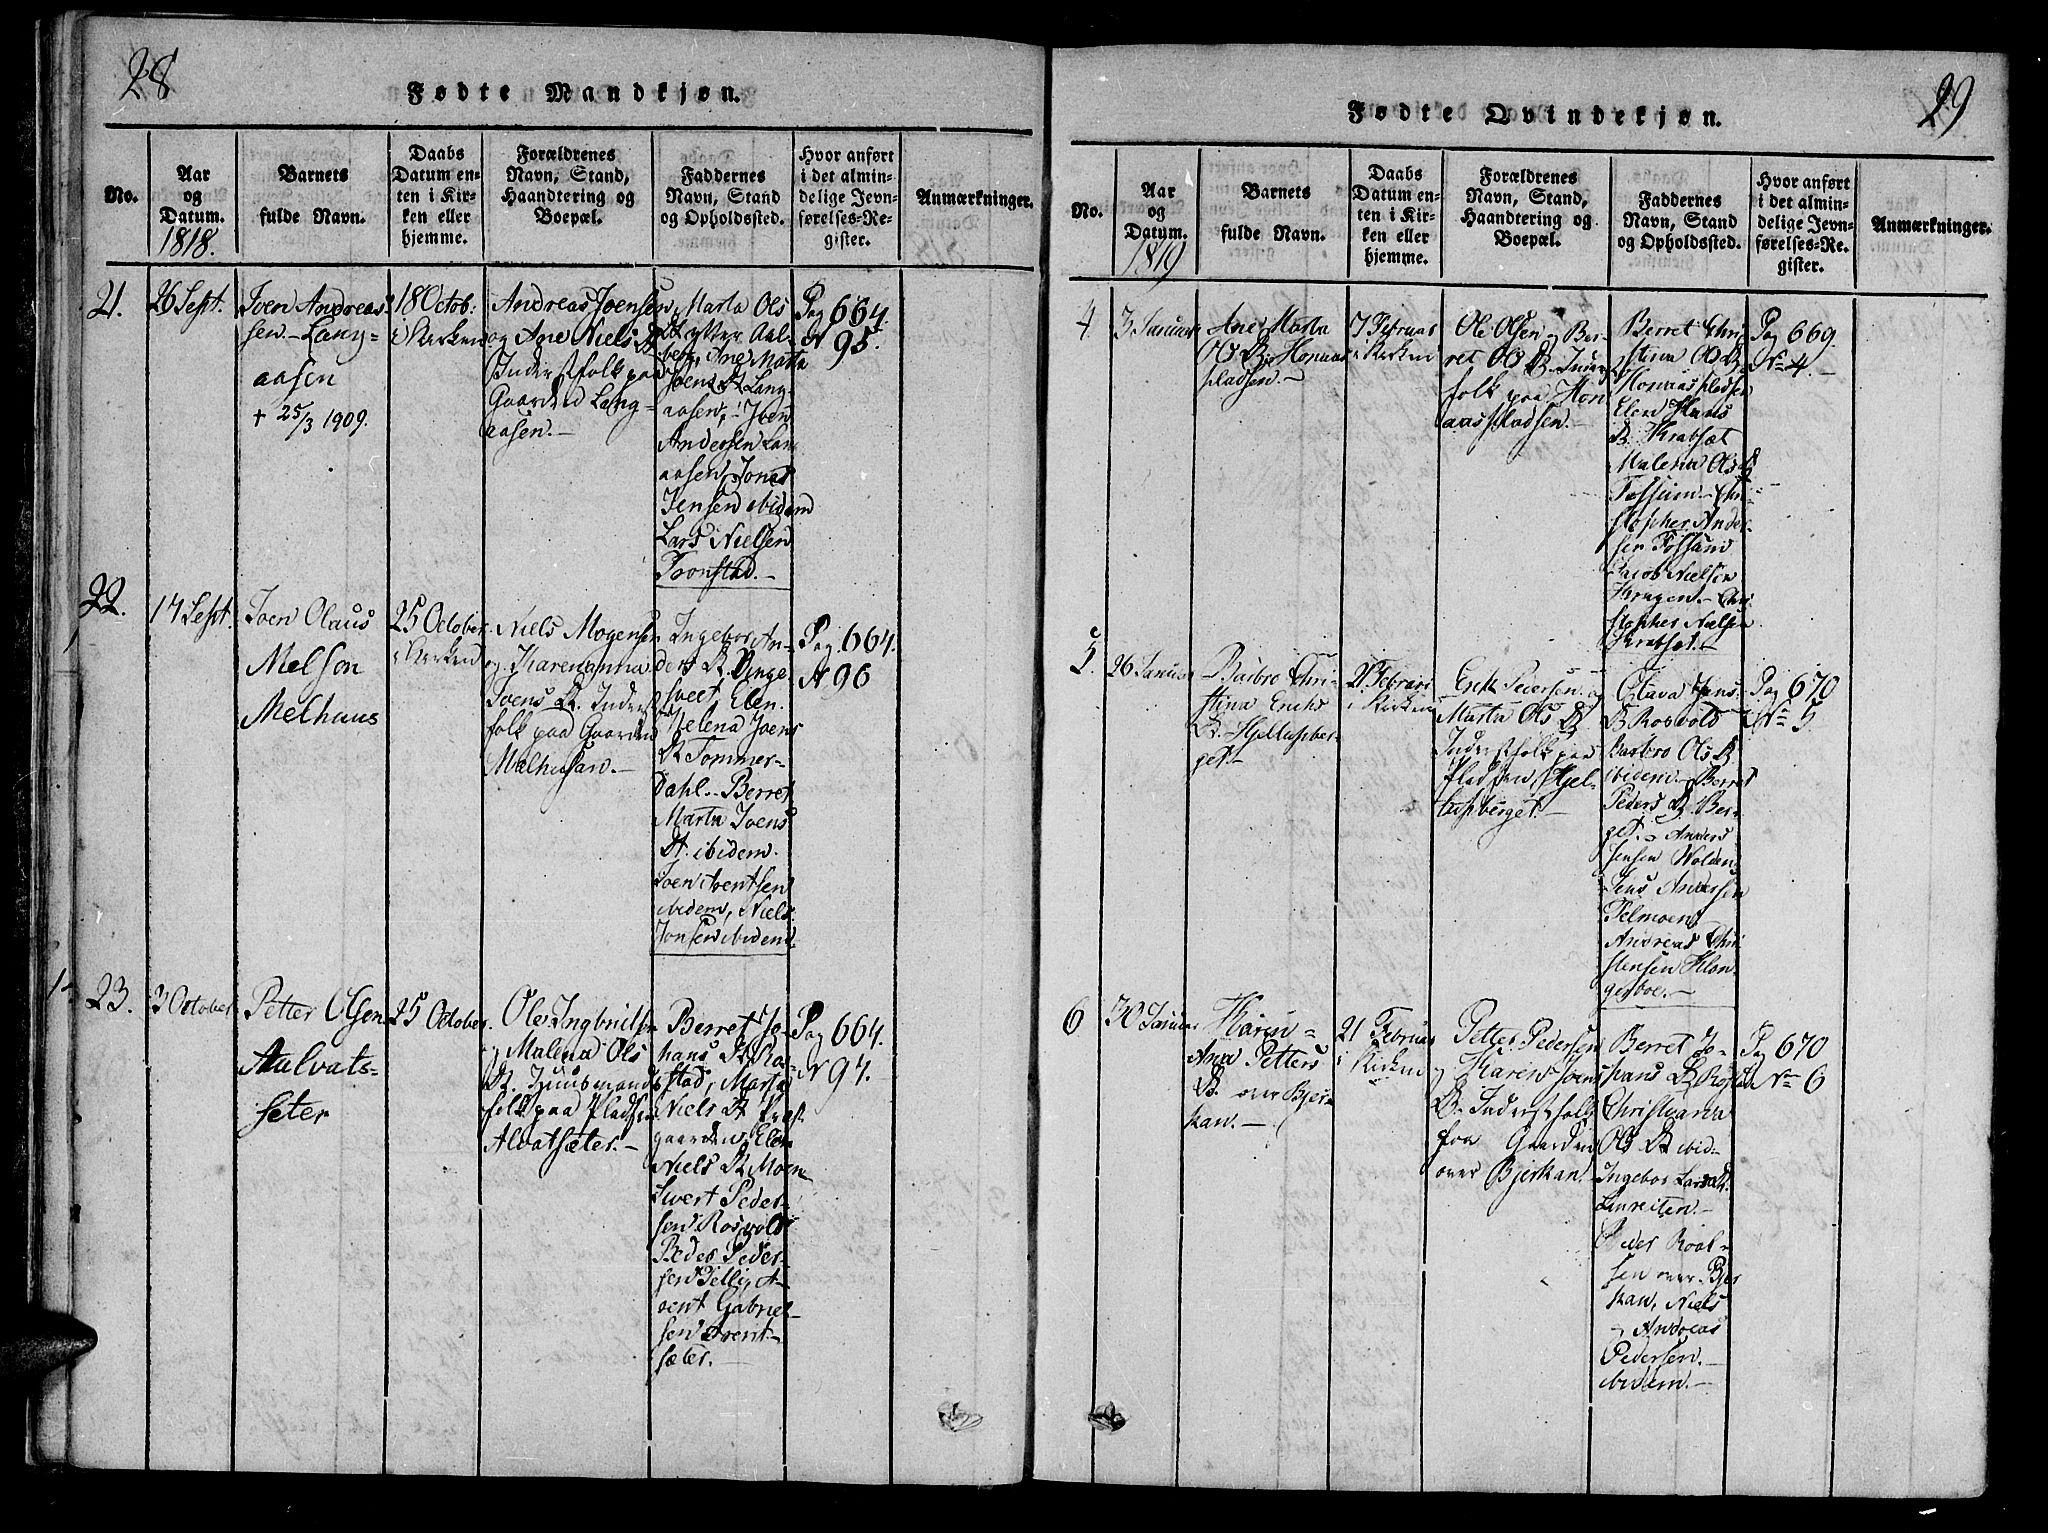 28
Fødte Mandkjøn.
No.
Aar
og
Datum.
1818.
Barnets
fulde Navn.
Daabs
Datum en-
ten i Kir-
ken eller
hjemme.
Forældrenes
Navn, Stand,
Haandtering og
Boepæl.
Faddernes
Navn, Stand
og Opholdssted.
Hvor anført
i det almin-
delige Jevn-
førelses-Re-
gister.
Anmærkninger.
21.
26 Sept.
Joen Andreas
sen. Lang-
aasen
+ 25/3 1909.
18 Octob:
i Kirken
Andreas Joensen
og Ane Niels D
Inderstfolk paa
Gaarden Lang-
aasen.-
Marta Ols
Dt ytter Aal-
berg, Ane Marta
Joens Dt Lang-
aasen, Joen
Andersen Lan
aasen, Jonas
Jensen ibidem
Lars Nielsen
Tronstad.-
Pag 664.
N 95.
22.
17 Sept.
Joen Olaus
Melson
Melhuus
25 October
i Kirken
Niels Mogensen
og Karenanna
Joens Dt. Inderst
folk paa Gaarden
Malhusan.-
Ingebor An-
ders Dt. Vinge
sveet Elen
Helena Joens
Dt Tommer-
dahl.- Berret
Marta Joens
Dt. ibidem.
Joen Arentsen
ibidem, Niels
Jonsen ibidem
Pag. 664.
N 96
23.
3 October
Petter Olsen
Aalvats-
seter
25 October.
Ole Ingbrits
og Malena Ols
Dt. Huusmands
folk paa Pladsen
Alvatsæter.-
Berret Jo-
hans Dt Ro-
stad, Marta
Niels Dt Præst
gaarden, Elen
Niels Dt Moen
Sivert Peder-
sen Rosvold
Peder Peder-
sen Tellig, A-
rent Gabriel-
sen Arent-
sæter.
Pag 664.
N 97.
29
Fødte Qvindekjøn.
No.
Aar
og
Datum.
1819
Barnets
fulde Navn.
Daabs
Datum en-
ten i Kir-
ken eller
hjemme.
Forældrenes
Navn, Stand,
Haandtering og
Boepæl.
Faddernes
Navn, Stand
og Opholdssted.
Hvor anført
i det almin-
delige Jevn-
førelses-Re-
gister.
Anmærkninger.
4
3 Januar
Ane Marta
Ols D. Honaas
pladsen.-
7 Februar
i Kirken
Ole Olsen og Ber-
ret Ols D. Inderst
folk paa Hon
aaspladsen.-
Berret Chri
stina Ols D
Honaaspladsen
Elen Hans
D. Krabsæt
Malena Ols D
Fossum.- Chri-
stopher Ander-
sen Fossum
Jacob Nielsen
Kragen.- Chri
stopher Nielsen
Krabsæt.-
Pag 669.
No 4.-
5.
26 Januar
Barbro Chri-
stina Erichs
D. Hjeltupber-
get.-
21 Februari
i Kirken
Erik Pedersen og
Marta Ols D
Inderstfolk paa
Pladsen Hjel-
tupberget.-
Olava Hans
D Rosvold
Barbro Ols D
ibidem.- Berret
Peders D. Ber-
get.- Anders
Jensen Wolden
Jens Andersen
Telmoen
Andreas Chri
stensen Klon-
gerboe.-
Pag 670
No 5.
6
30 Januar
Karen
Ana Petters
D. over Bjer-
kan.-
21 Februar
i Kirken
Petter Pedersen
og Karen Joens
D. Inderstfolk
paa Gaarden
over Bjerkan.
Berret Jo-
hans D Rostad
Christianna
Ols D ibid-
Ingebor Lars D.
Lanreiten.-
Peder Roal-
sen over Bjer
kan, Niels
og Andreas
Pedersen.-
ibidem.-
Pag 670
No 6